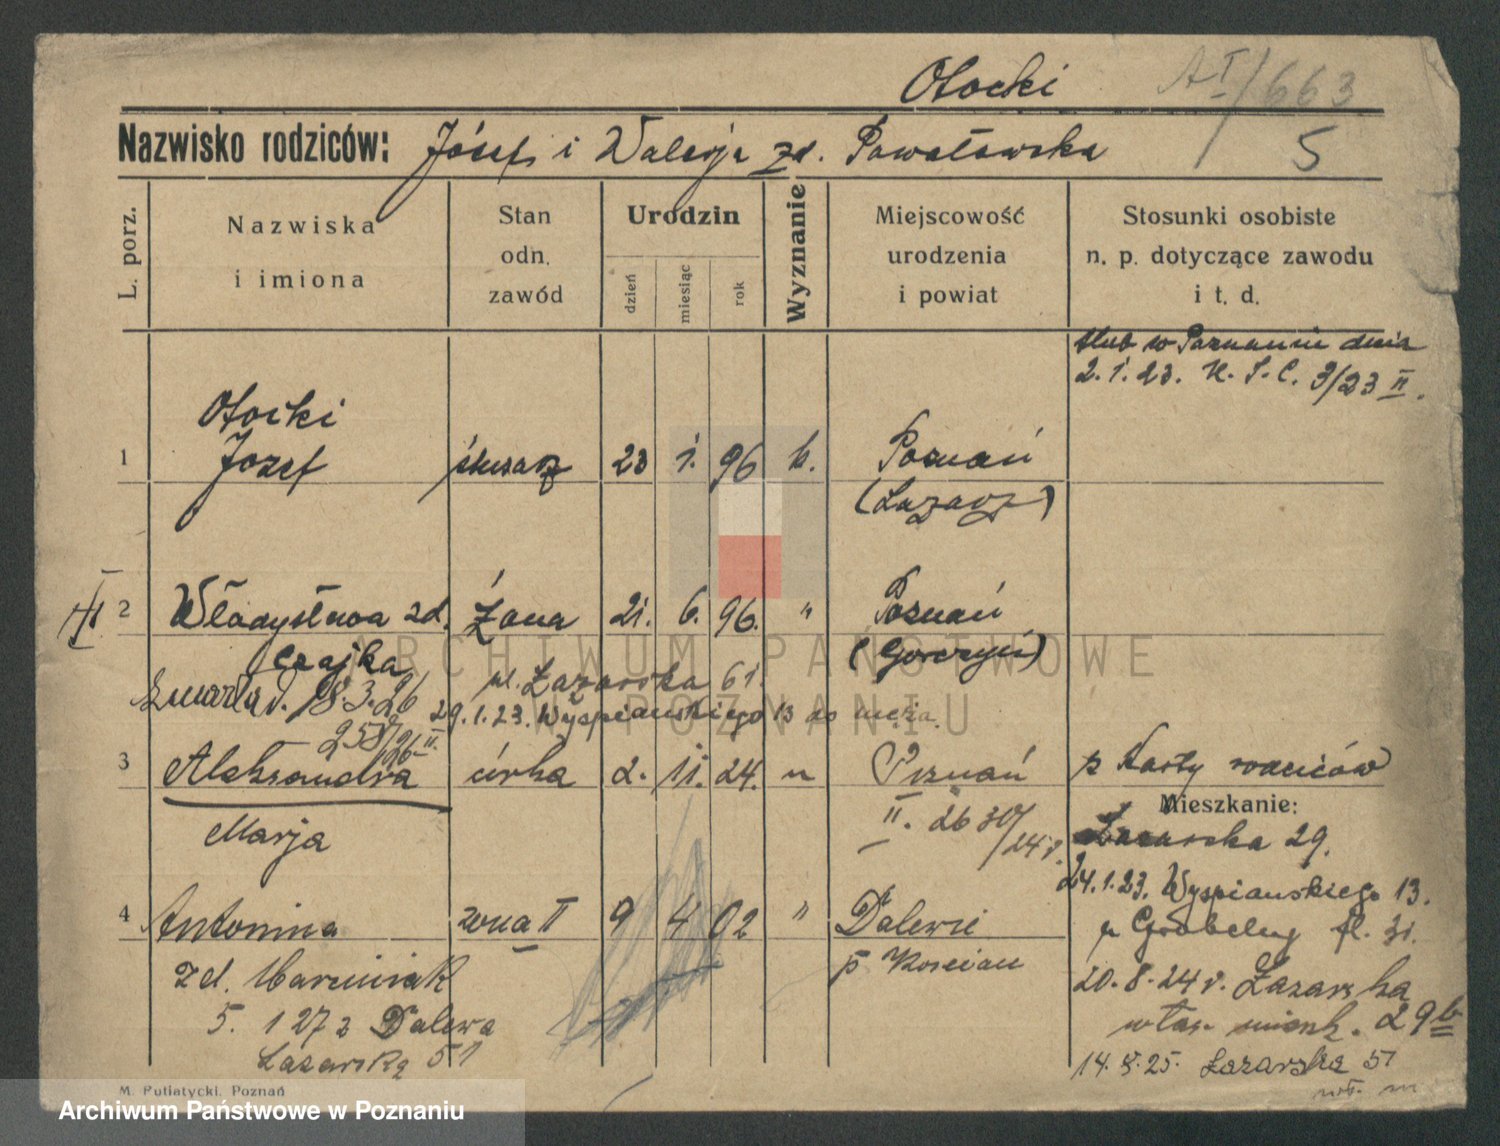 Otocki
A I/663
5
Nazwisko rodziców: Józef i Walerja zd. Pawołowska
L. porz.
Nazwiska i imiona
Stan odn. zawód
Urodzin
dzień
miesiąc
rok
Wyznanie
Miejscowość urodzenia i powiat
Stosunki osobiste n. p. dotyczące zawodu i t. d.
ślub w Poznaniu dnia
2.1.23. U.S.C. 3/23 II.
Otocki
1 Józef ślusarz 23 1. 96 k. Poznań
(Łazarz)
II 2 Władysława zd. Żona 21. 6. 96. " Poznań
Czajka (Gorczyn)
zmarła d. 18.3.26 ul. Łazarska 61.
29.1.23. Wyspiańskiego 13 do męża.
258/26 II.
3 Aleksandra córka 2. 11. 24. " Poznań z Karty rodziców
Marja II. 2630/24 r.
Mieszkanie:
Łazarska 29.
24.1.23. Wyspiańskiego 13.
4 Antonina żona II 9 4 02 " Dalewie
fl. 31.
zd. Marciniak p Kościan
20.8.24 r. Łazarska
5. 127 z Dalewa
własn. mieszk. 29b
Łazarska 51
14.8.25. Łazarska 51
wł. m
M. Putiatycki, Poznań
ARCHIWUM PAŃSTWOWE
W POZNANIU
Archiwum Państwowe w Poznaniu